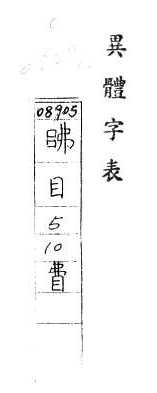 異體字表
08905
目
5
10